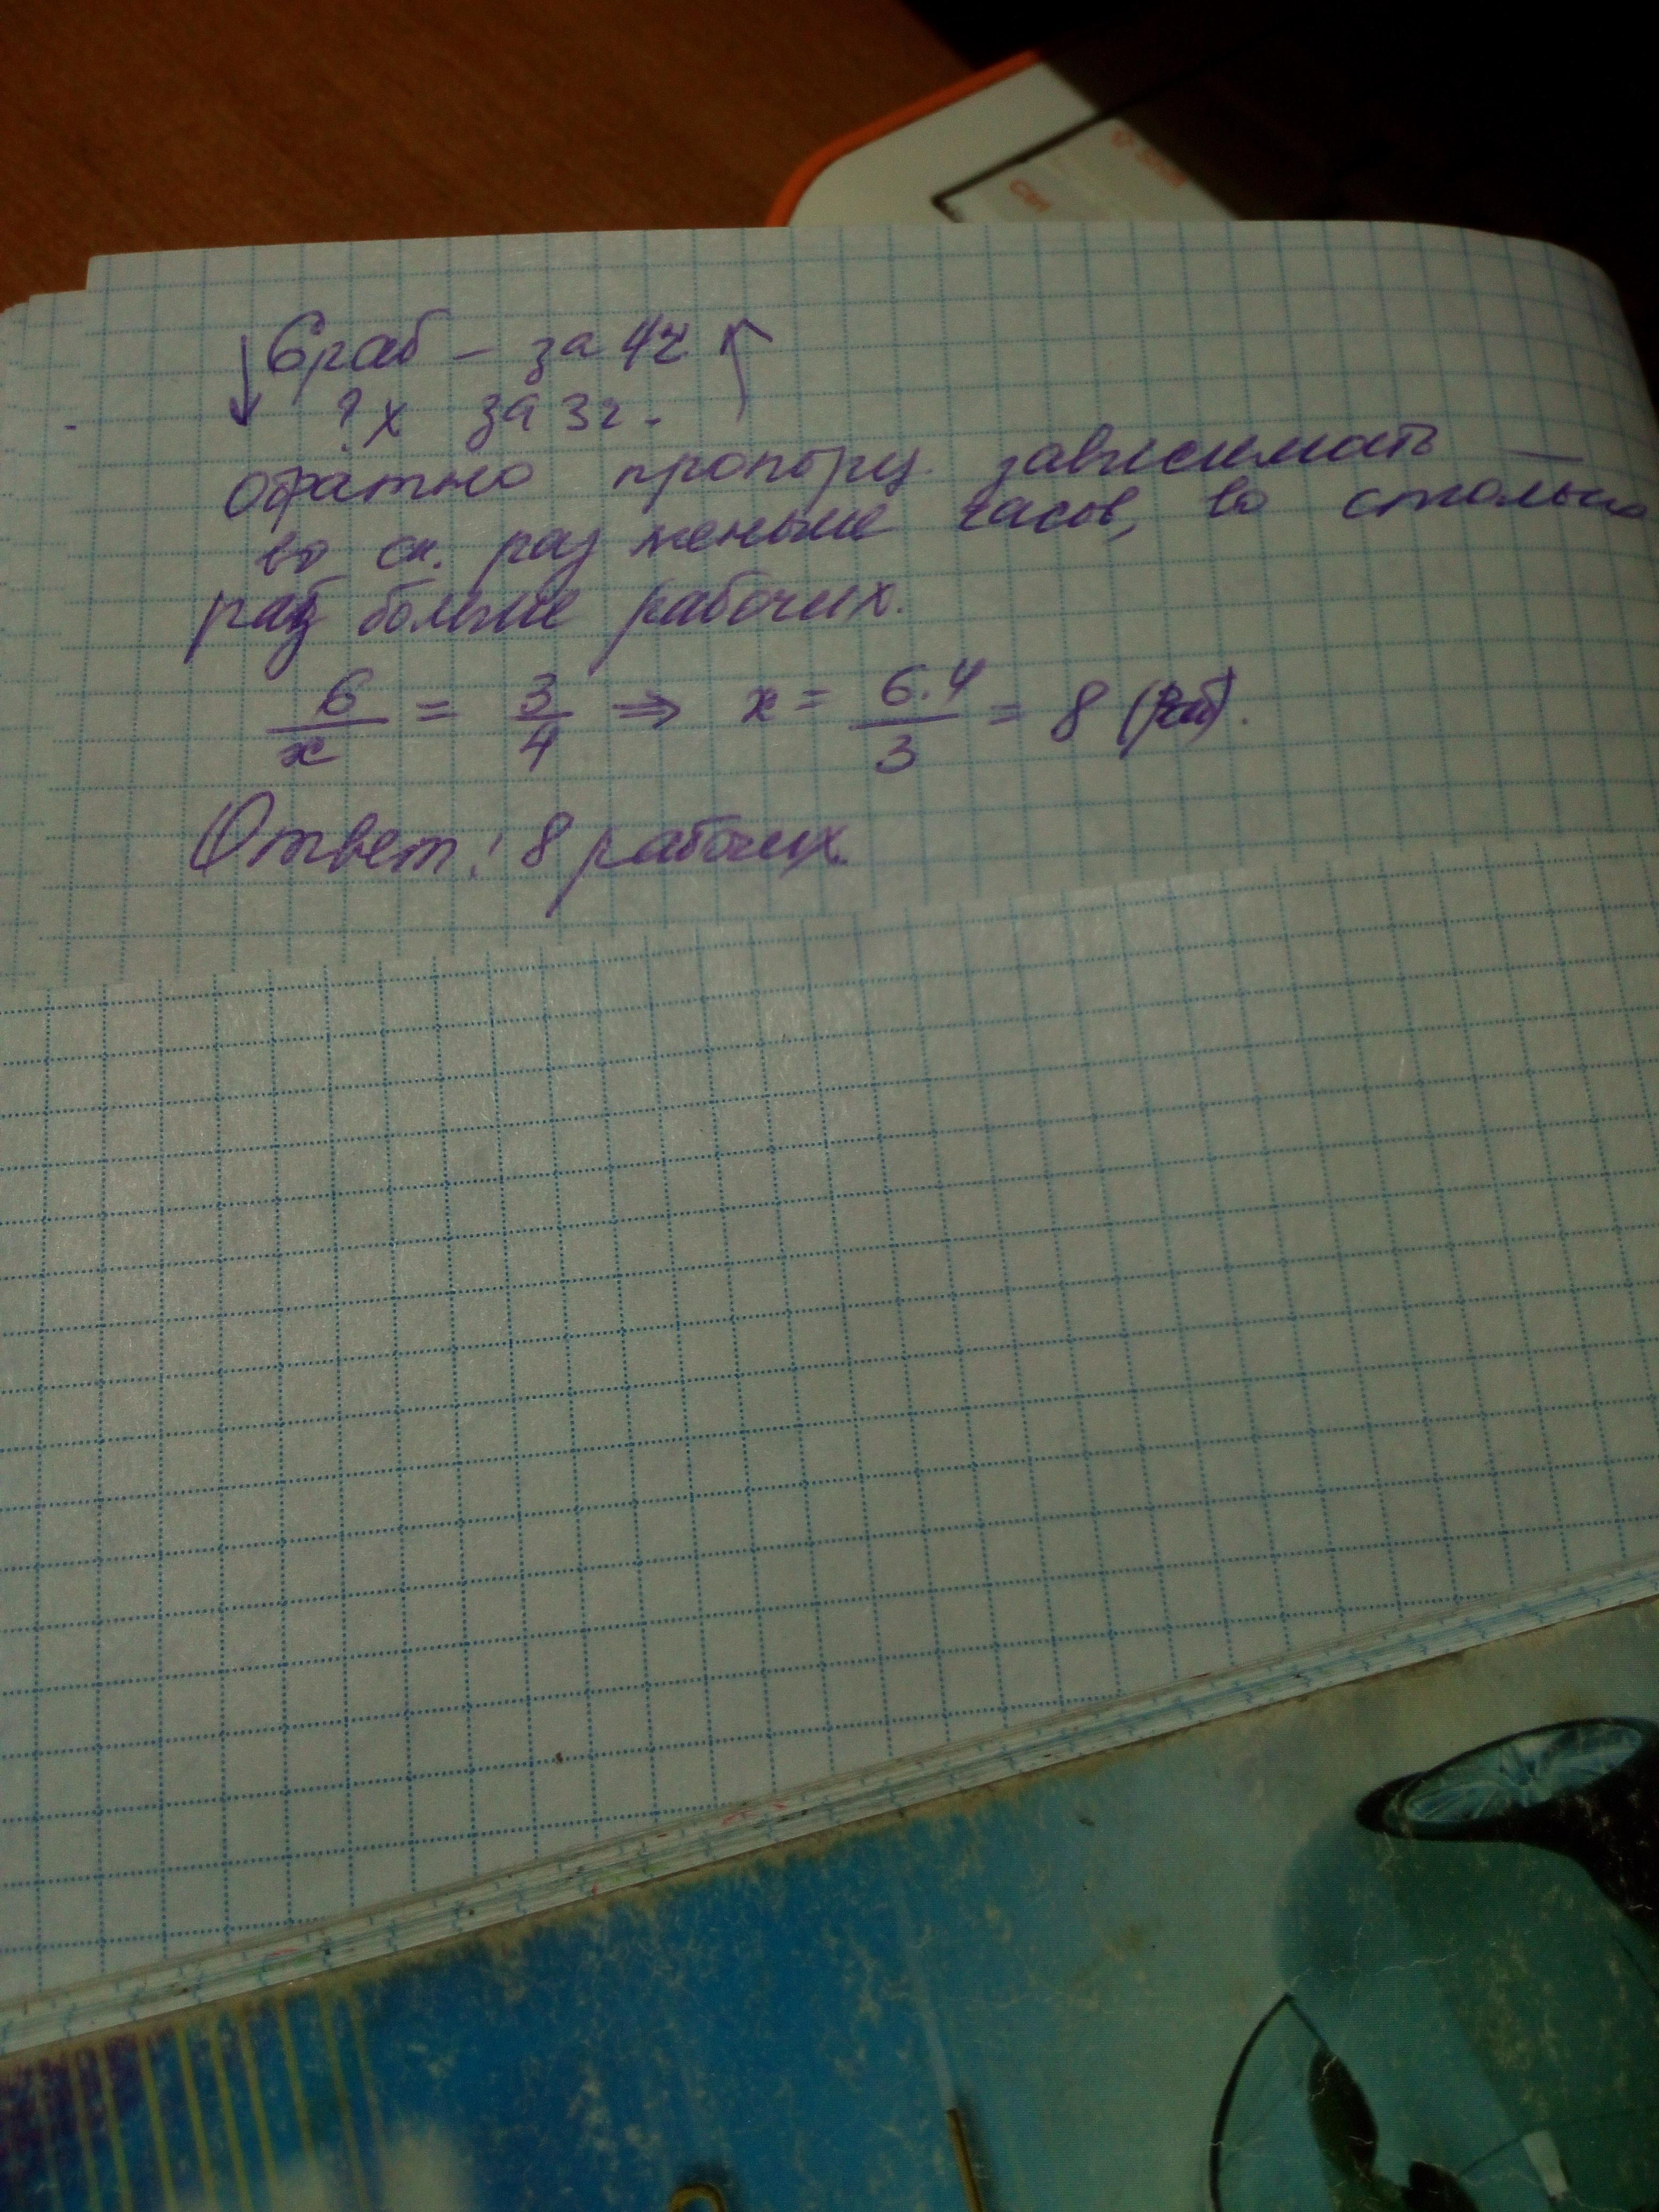 6 раб – за 4ч.
? х за 3г.
обратно пропорц. зависимать —
во ск. раз меньше часов, во столько
раз больше рабочих.
6/х = 3/4 ⇒ х = 6·4/3 = 8 (раб).
Ответ: 8 рабочих.